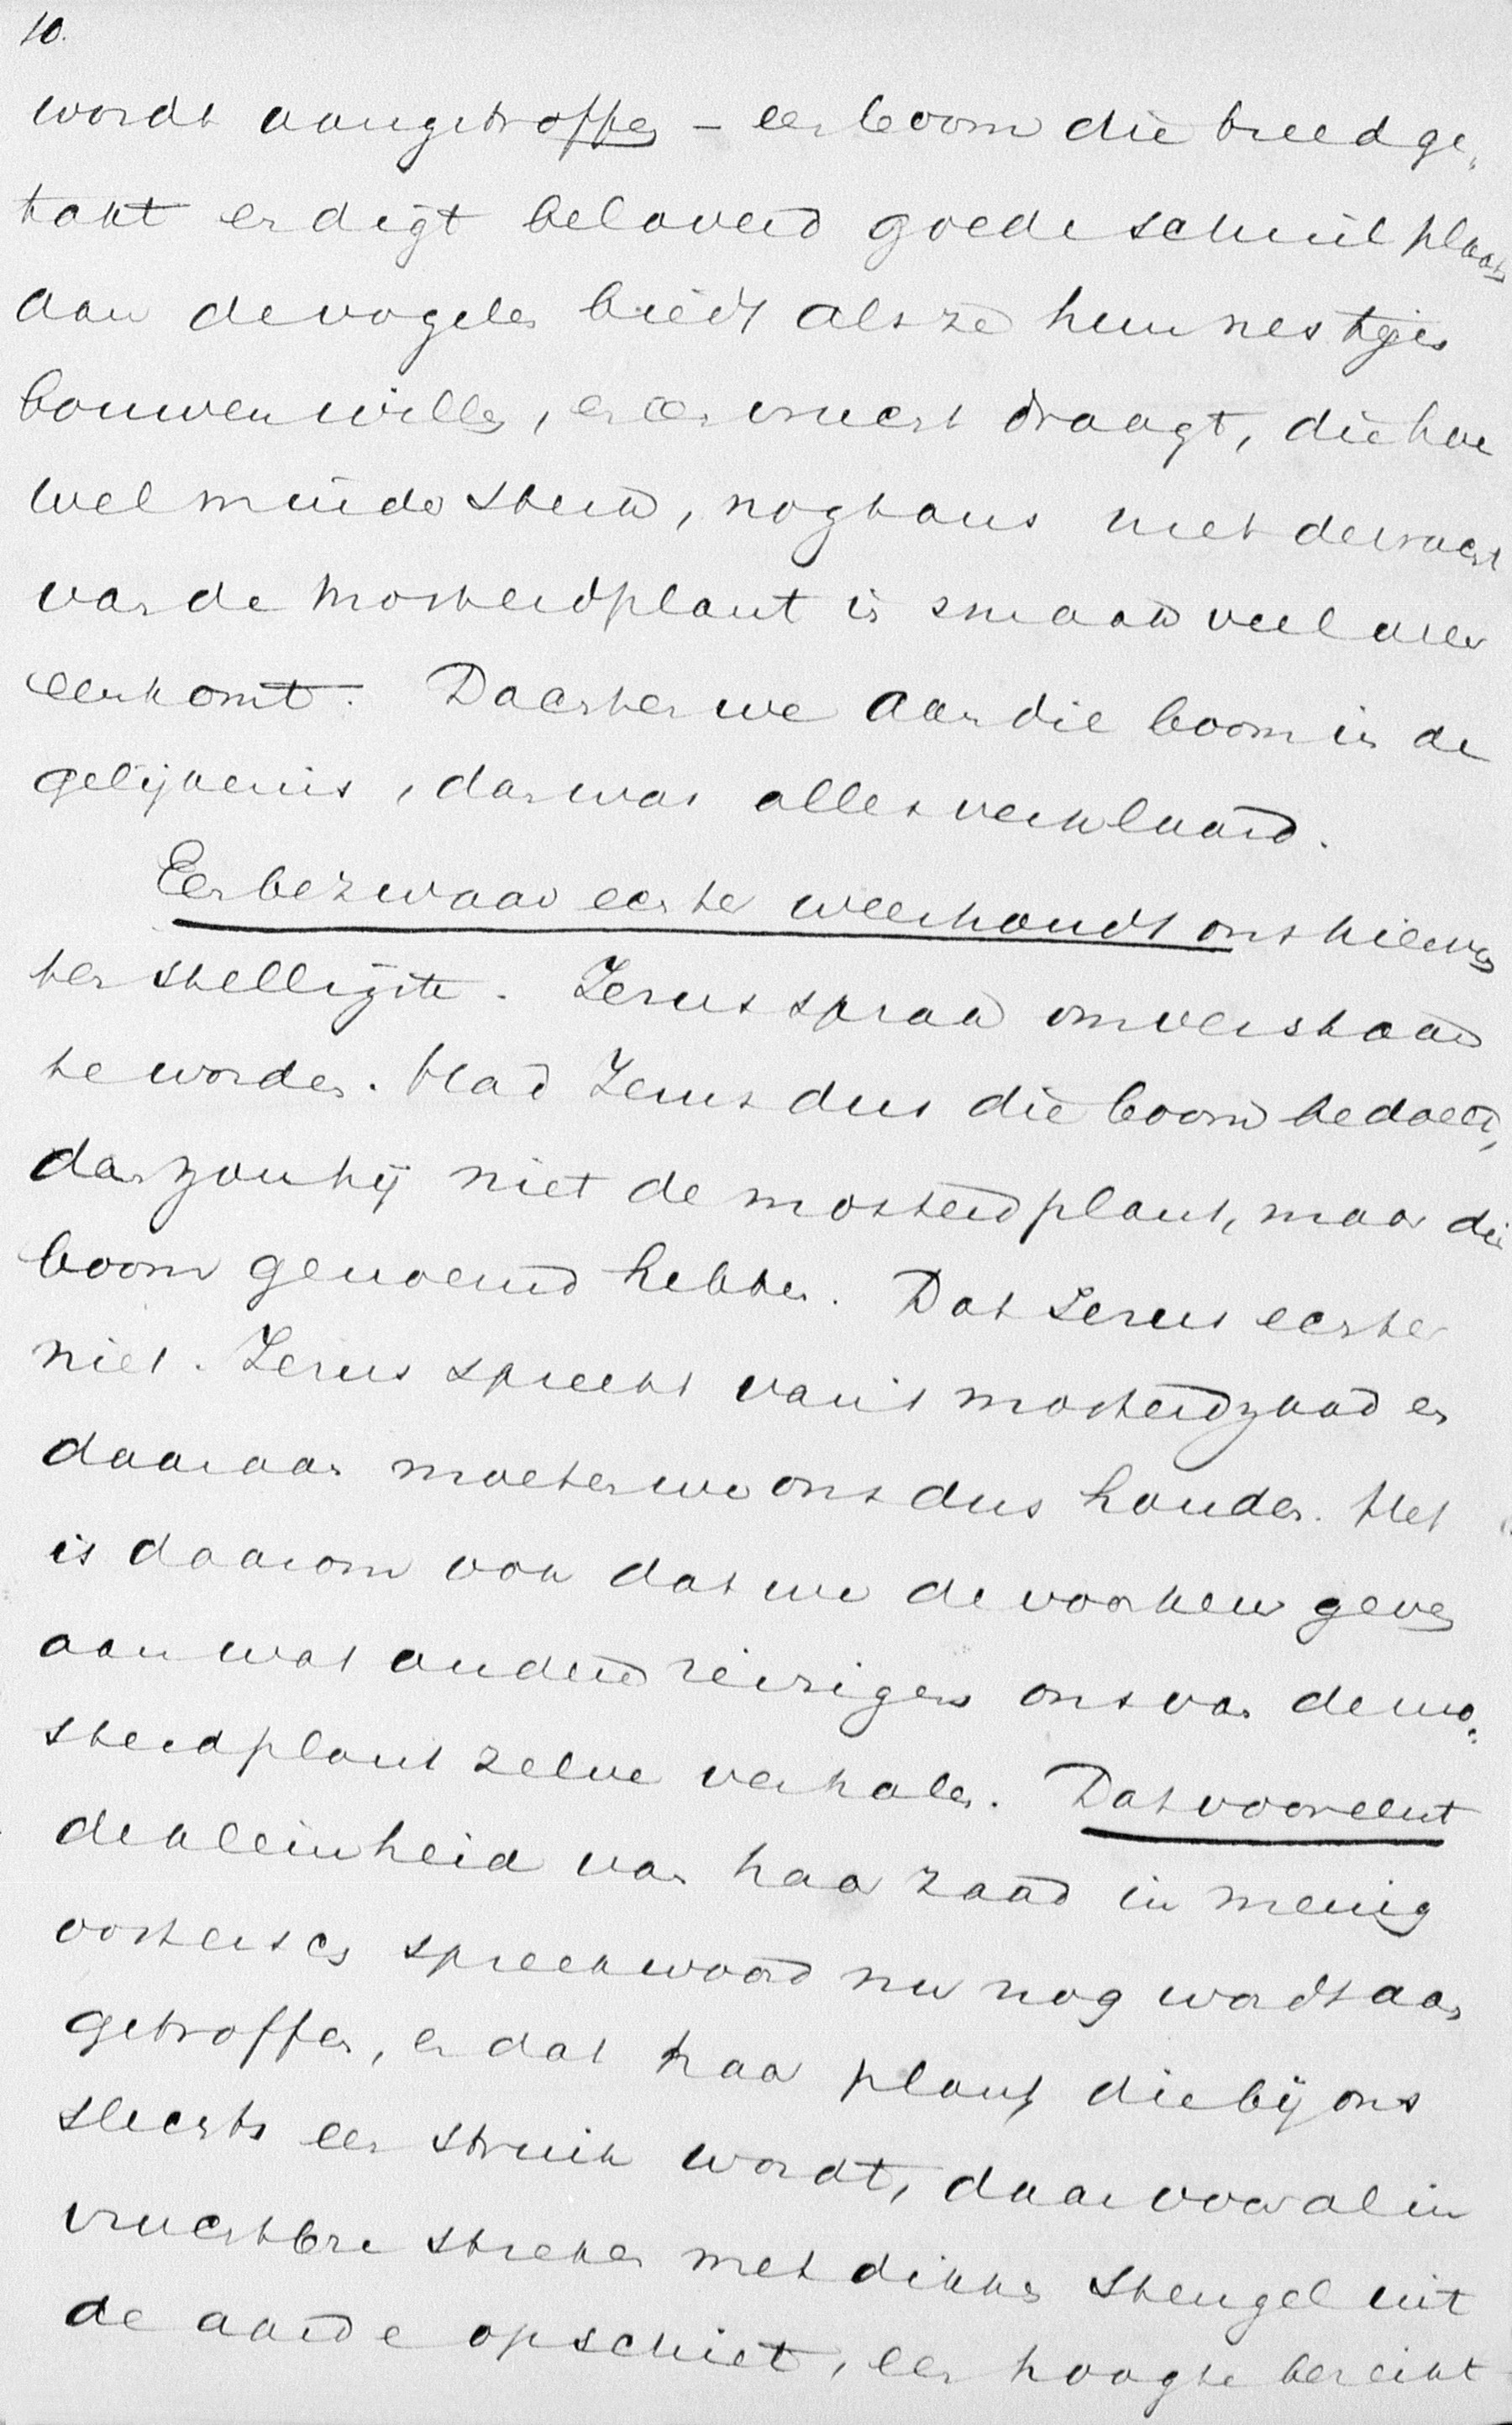 10.
wordt aangetroffen – een boom die breed ge-
takt en digt beloverd goede schuilplaats
aan de vogelen biedt als ze hun nestjes
bouwen willen, en een vrucht draagt, die hoe
wel minder sterk, nogtans met de vrucht
van de mosterdplant in smaak veel over
eenkomt. Dachten we aan die boom in de
gelijkenis, dan was alles verklaard.
Een bezwaar echter weerhoudt ons hieromtrent
ten stelligste. Jezus sprak om verstaan
te worden. Had Jezus dus die boom bedoeld,
dan zou hij niet de mosterdplant, maar die
boom genoemd hebben. Dat Jezus echter
niet. Jezus spreekt van 't mosterdzaad en
daaraan moeten we ons dus houden. Het
is daarom ook dat we de voorkeur geven
aan wat andere reizigers ons van de mo-
sterdplant zelve verhalen. Dat vooreerst
de kleinheid van haar zaad in menig
oostersch spreekwoord nu nog wordt aan
getroffen, en dat haar plant, die bij ons
slechts een struik wordt, daar vooral in
vruchtbre streken met dikken stengel uit
de aarde opschiet, een hoogte bereikt